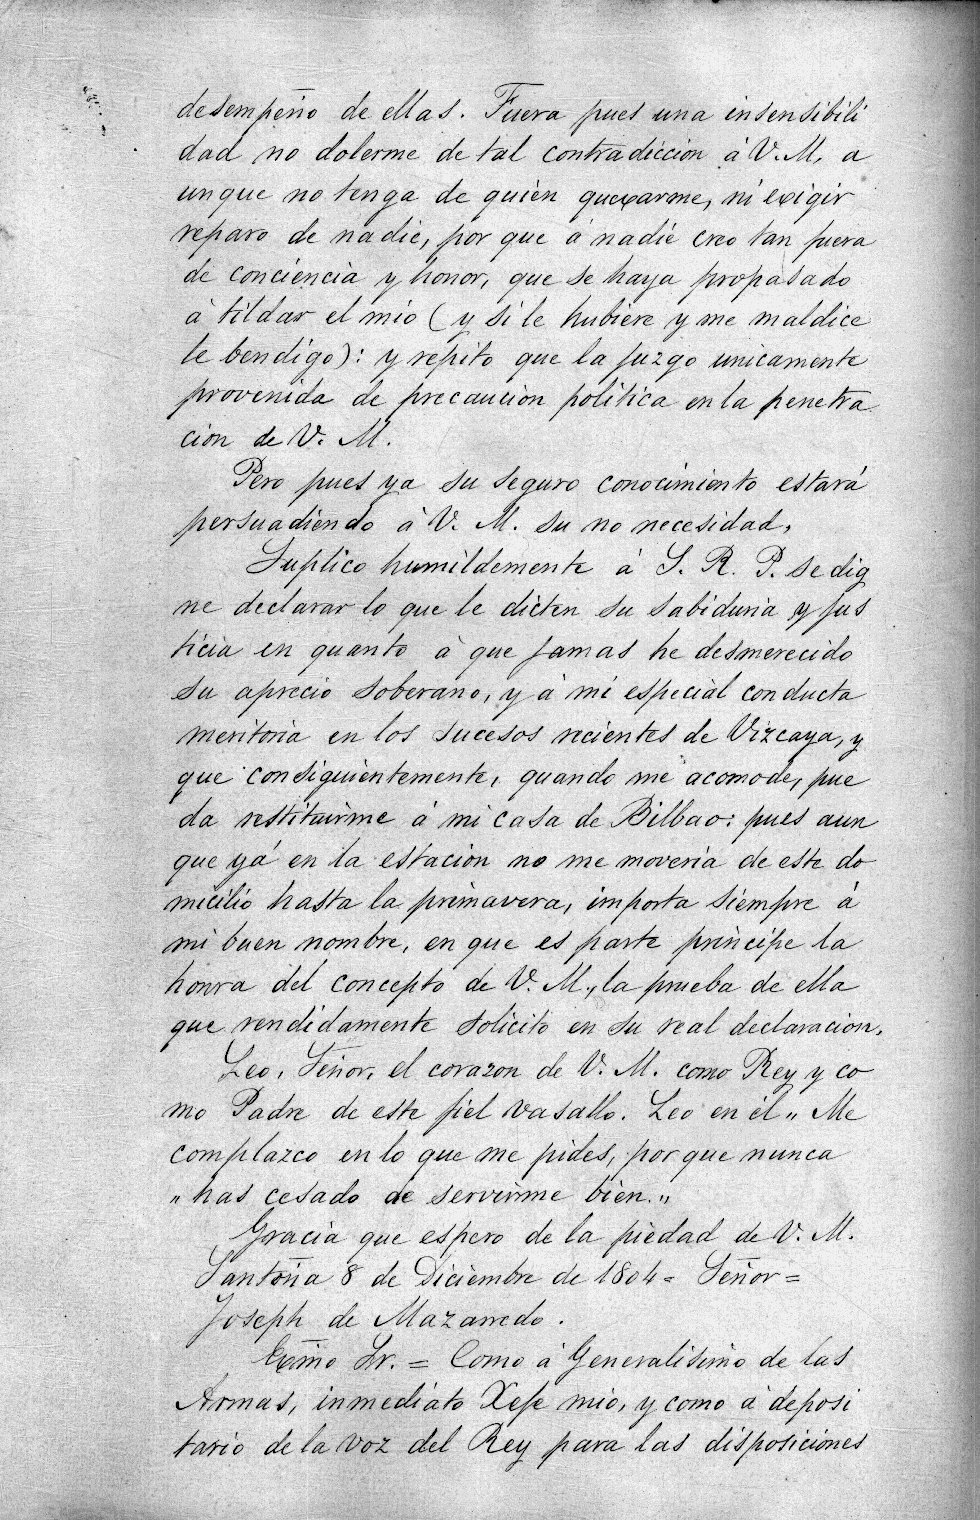 desempeño de ellas. Fuera pues una insensibili
dad no dolerme de tal contradiccion á V. M. a
unque no tenga de quién quexarme, ni exigir
reparo de nadie, por que á nadie creo tan fuera
de conciencia y honor, que se haya propasado
á tildar el mio (y si le hubiere y me maldice
le bendigo): y repito que la juzgo unicamente
provenida de precaucion politica en la penetra
cion de V. M.
Pero pues ya su seguro conocimiento estará
persuadiendo á V. M. su no necesidad,
Suplico humildemente á S. R. P. se dig
ne declarar lo que le dicten su sabiduria y jus
ticia en quanto á que jamas he desmerecido
su aprecio soberano, y á mi especial conducta
meritoria en los sucesos recientes de Vizcaya, y
que consiguientemente, quando me acomode, pue
da restituirme á mi casa de Bilbao: pues aun
que yá en la estacion no me moveria de este do
micilio hasta la primavera, importa siempre á
mi buen nombre, en que es parte principe la
honra del concepto de V. M., la prueba de ella
que rendidamente solicito en su real declaracion.
Leo, Señor, el corazon de V. M. como Rey y co
mo Padre de este fiel vasallo. Leo en él „ Me
complazco en lo que me pides, por que nunca
„ has cesado de servirme bien. „
Gracia que espero de la piedad de V. M.
Santoña 8 de Diciembre de 1804 = Señor =
Joseph de Mazarredo.
Exmo Sr. = Como á Generalisimo de las
Armas, inmediato Xefe mio, y como á deposi
tario de la voz del Rey para las disposiciones